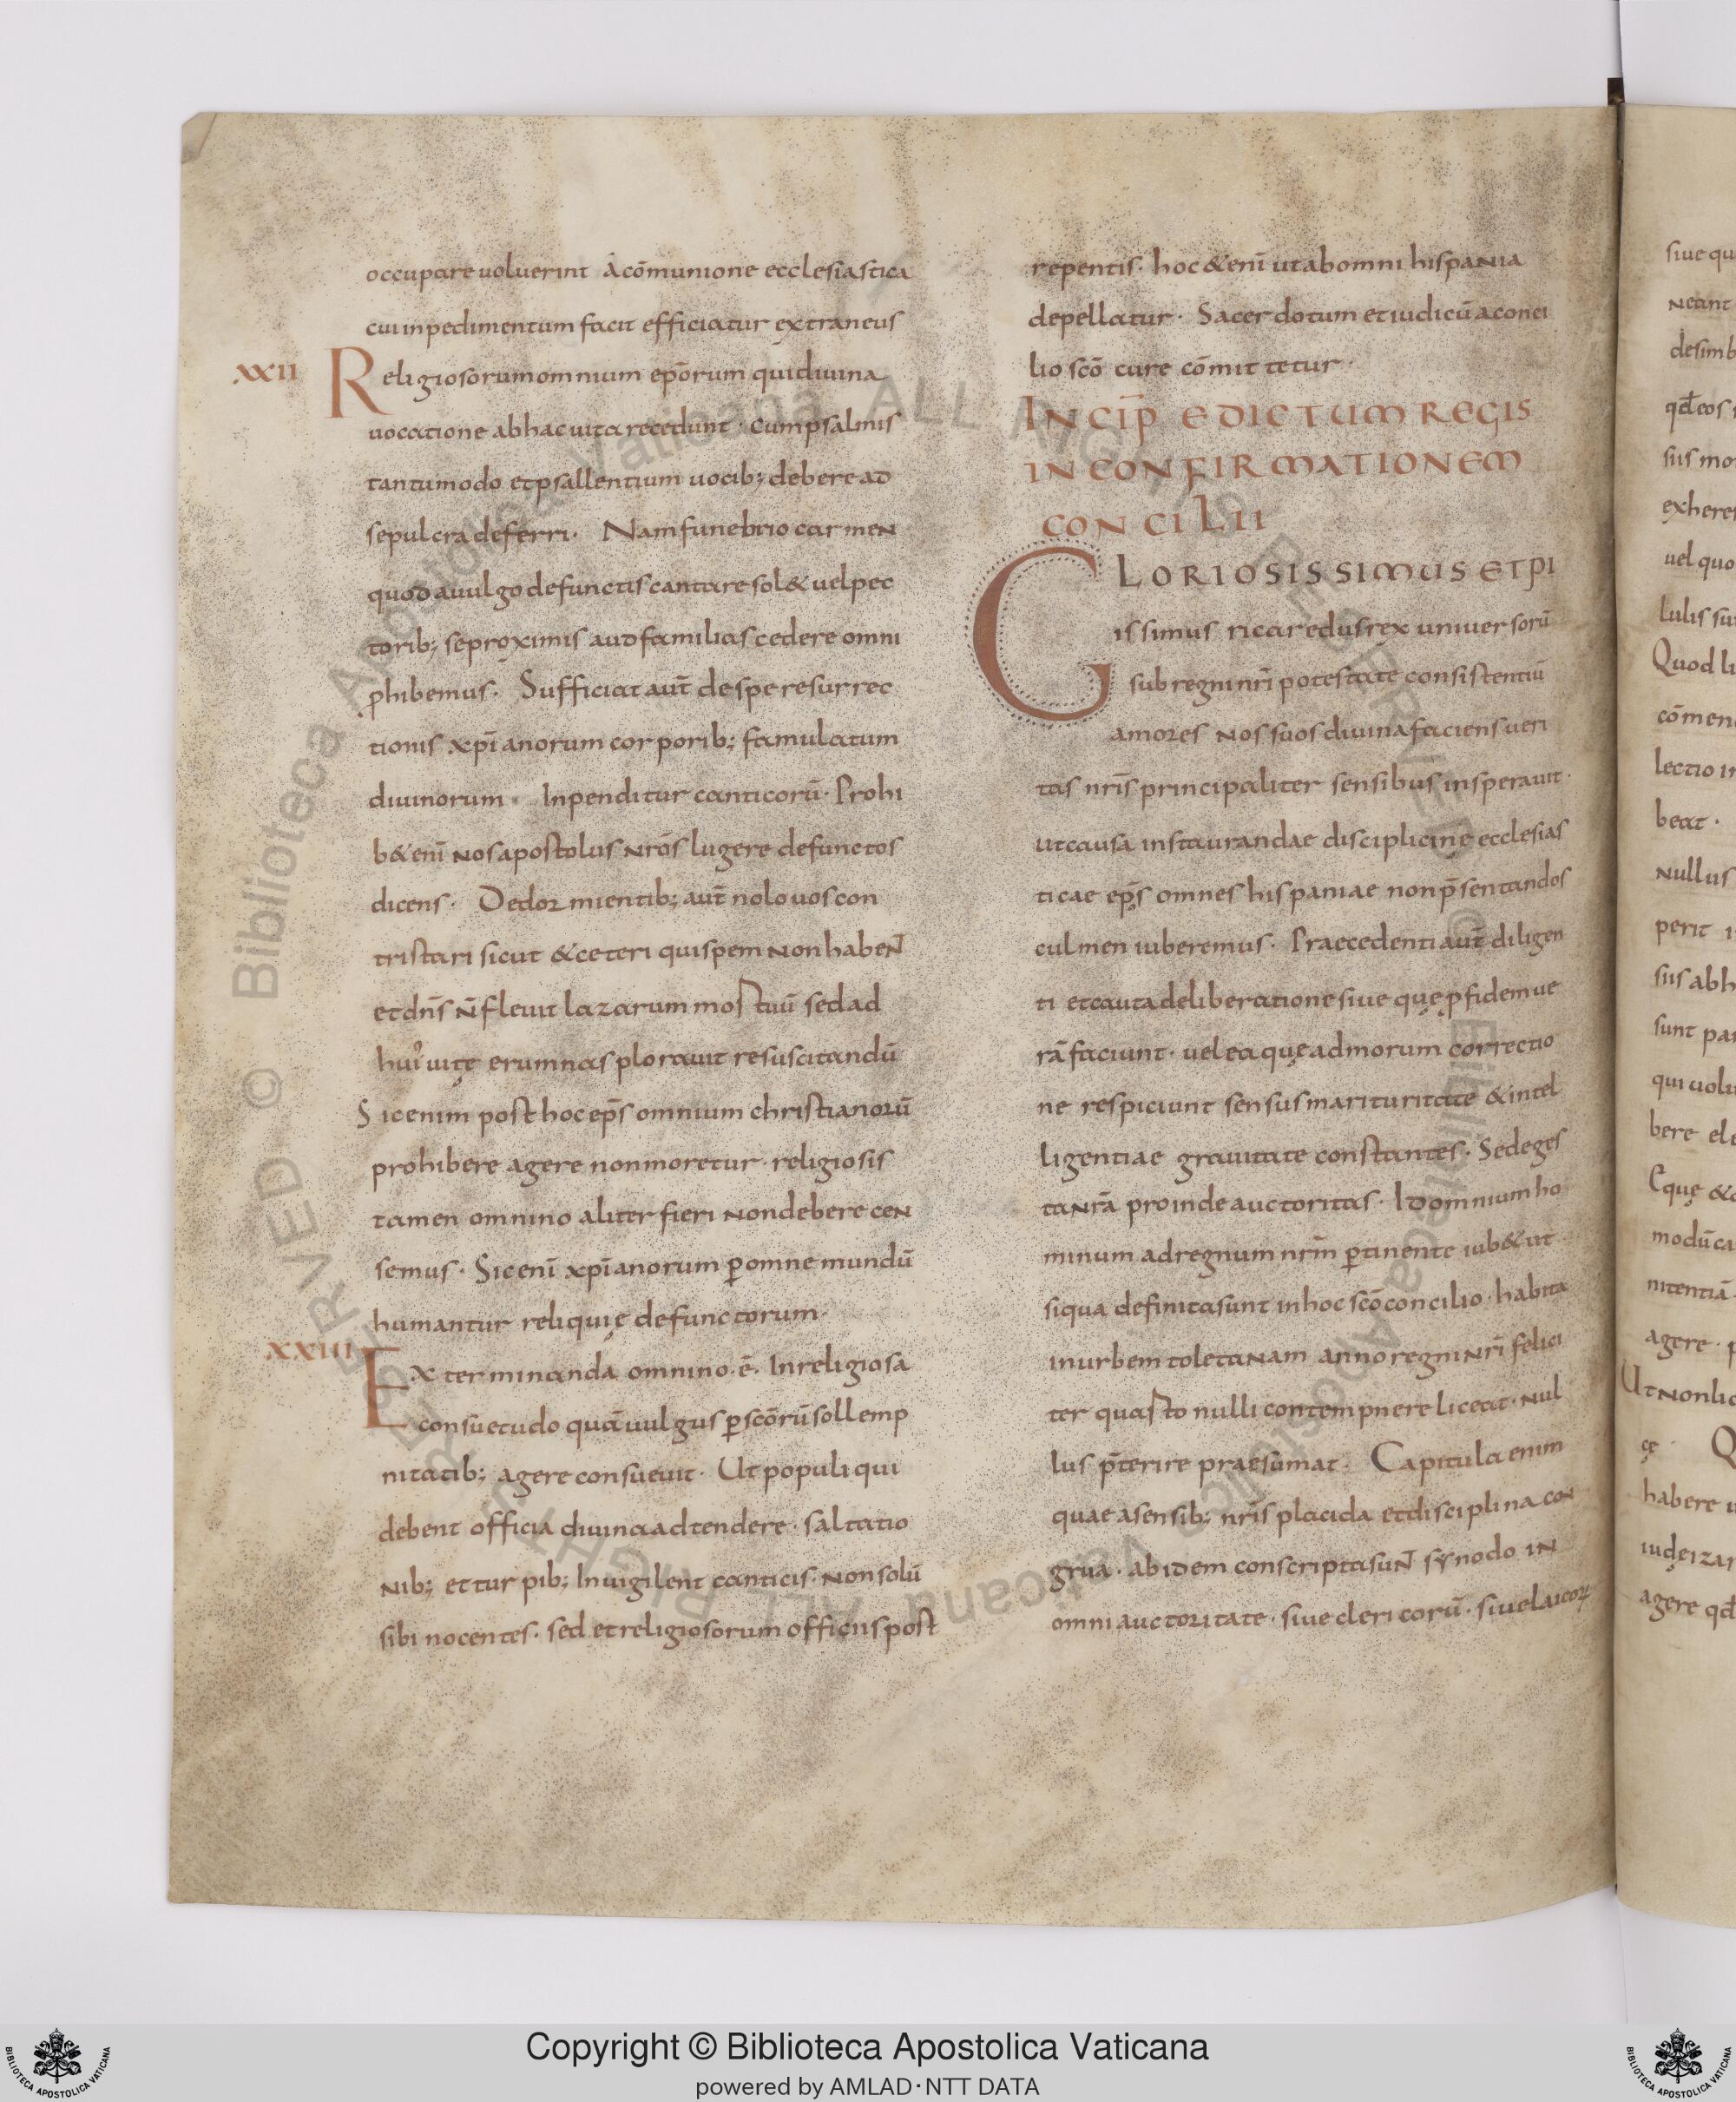 occupare uoluerint A cōmunione ecclesiastica
cui inpedimentum facit efficiatur extraneus
XXII Religiosorum omnium ep̄orum qui diuina
uocatione ab hac uita recedunt · Cum psalmis
tantumodo et psallentium uocib; debere ad
sepulcra deferri · Nam funebrio carmen
quod a uulgo defunctis cantare sol& uel pec
torib; se proximis aud familias cedere omni
p̱hibemus · Sufficiat aut̄ de spe resurrec
tionis xp̄ianorum corporib; famulatum
diuinorum · Inpenditur canticorū · Prohi
b& enī nos apostolus nrōs lugere defunctos
dicens · Dedormientib; aut̄ nolo uos con
tristari sicut & ceteri qui spem non haben̄t
et dn̄s n̄ fleuit lazarum mortuū sed ad
hui' uitę erumnas plorauit resuscitandū
Sic enim post hoc ep̄s omnium christianorū
prohibere agere non moretur · religiosis
tamen omnino aliter fieri non debere cen
semus · Sic enī xp̄ianorum ꝑ omne mundū
humantur reliquię defunctorum ·
XXIII Exterminanda omnino · ē · Inreligiosa
consuetudo quā uulgus ꝑ scōrū sollemp
nitatib; agere consueuit · Ut populi qui
debent officia diuina adtendere · saltatio
nib; et turpib; Inuigilent canticis · non solū
sibi nocentes · sed et religiosorum officiis post
repentis · hoc & enī ut ab omni hispania
depellatur · Sacerdotum et iudicū a conci
lio scō cure cōmittetur ·
INCIP̄ EDICTUM REGIS
IN CONFIRMATIONEM
CONCILII
GLORIOSISSIMUS ET PI
issimus ricaredus rex uniuersorū
sub regni nr̄i potestate consistentiū
amores nos suos diuina faciens ueri
tas nr̄is principaliter sensibus insperauit ·
ut causa instaurandae disciplicinę ecclesias
ticae ep̄s omnes hispaniae non p̄sentandos
culmen iuberemus · Praecedenti aut̄ diligen
ti et cauta deliberatione siue quę ꝑ fidem ue
rā faciunt · uel ea quę ad morum correctio
ne respiciunt sensus marituritate & intel
ligentiae grauitate constantes · Sed eges
ta nr̄a proinde auctoritas · Id omnium ho
minum ad regnum nrm̄ ꝑtinente iub& ut
siqua definita sunt in hoc scō concilio · habita
in urbem toletanam anno regni nr̄i felici
ter quarto nulli contempnere liceat · nul
lus p̄terire praesumat · Capitula enim
quae a sensib; nr̄is placida et disciplina con
grua · ab idem conscripta sun̄t synodo in
omni auctoritate · siue clericorū · siue laicoꝝ
siue qu
neant
desimb
qd̄ eos
sus mo
exhere
uel quo
lulis su
Quod li
cōmen
lectio i
beat ·
nullus
perit i
sus ab h
sunt pa
qui uolu
bere ele
Eque &
modū ca
nitentiā
agere · p
Ut non lic
cę · Q
habere u
iudęizar
agere qd̄
Copyright © Biblioteca Apostolica Vaticana
powered by AMLAD·NTT DATA
BIBLIOTECA APOSTOLICA VATICANA
BIBLIOTECA APOSTOLICA VATICANA
© Biblioteca Apostolica Vaticana ALL RIGHTS RESERVED © Biblioteca Apostolica Vaticana ALL RIGHTS RESERVED